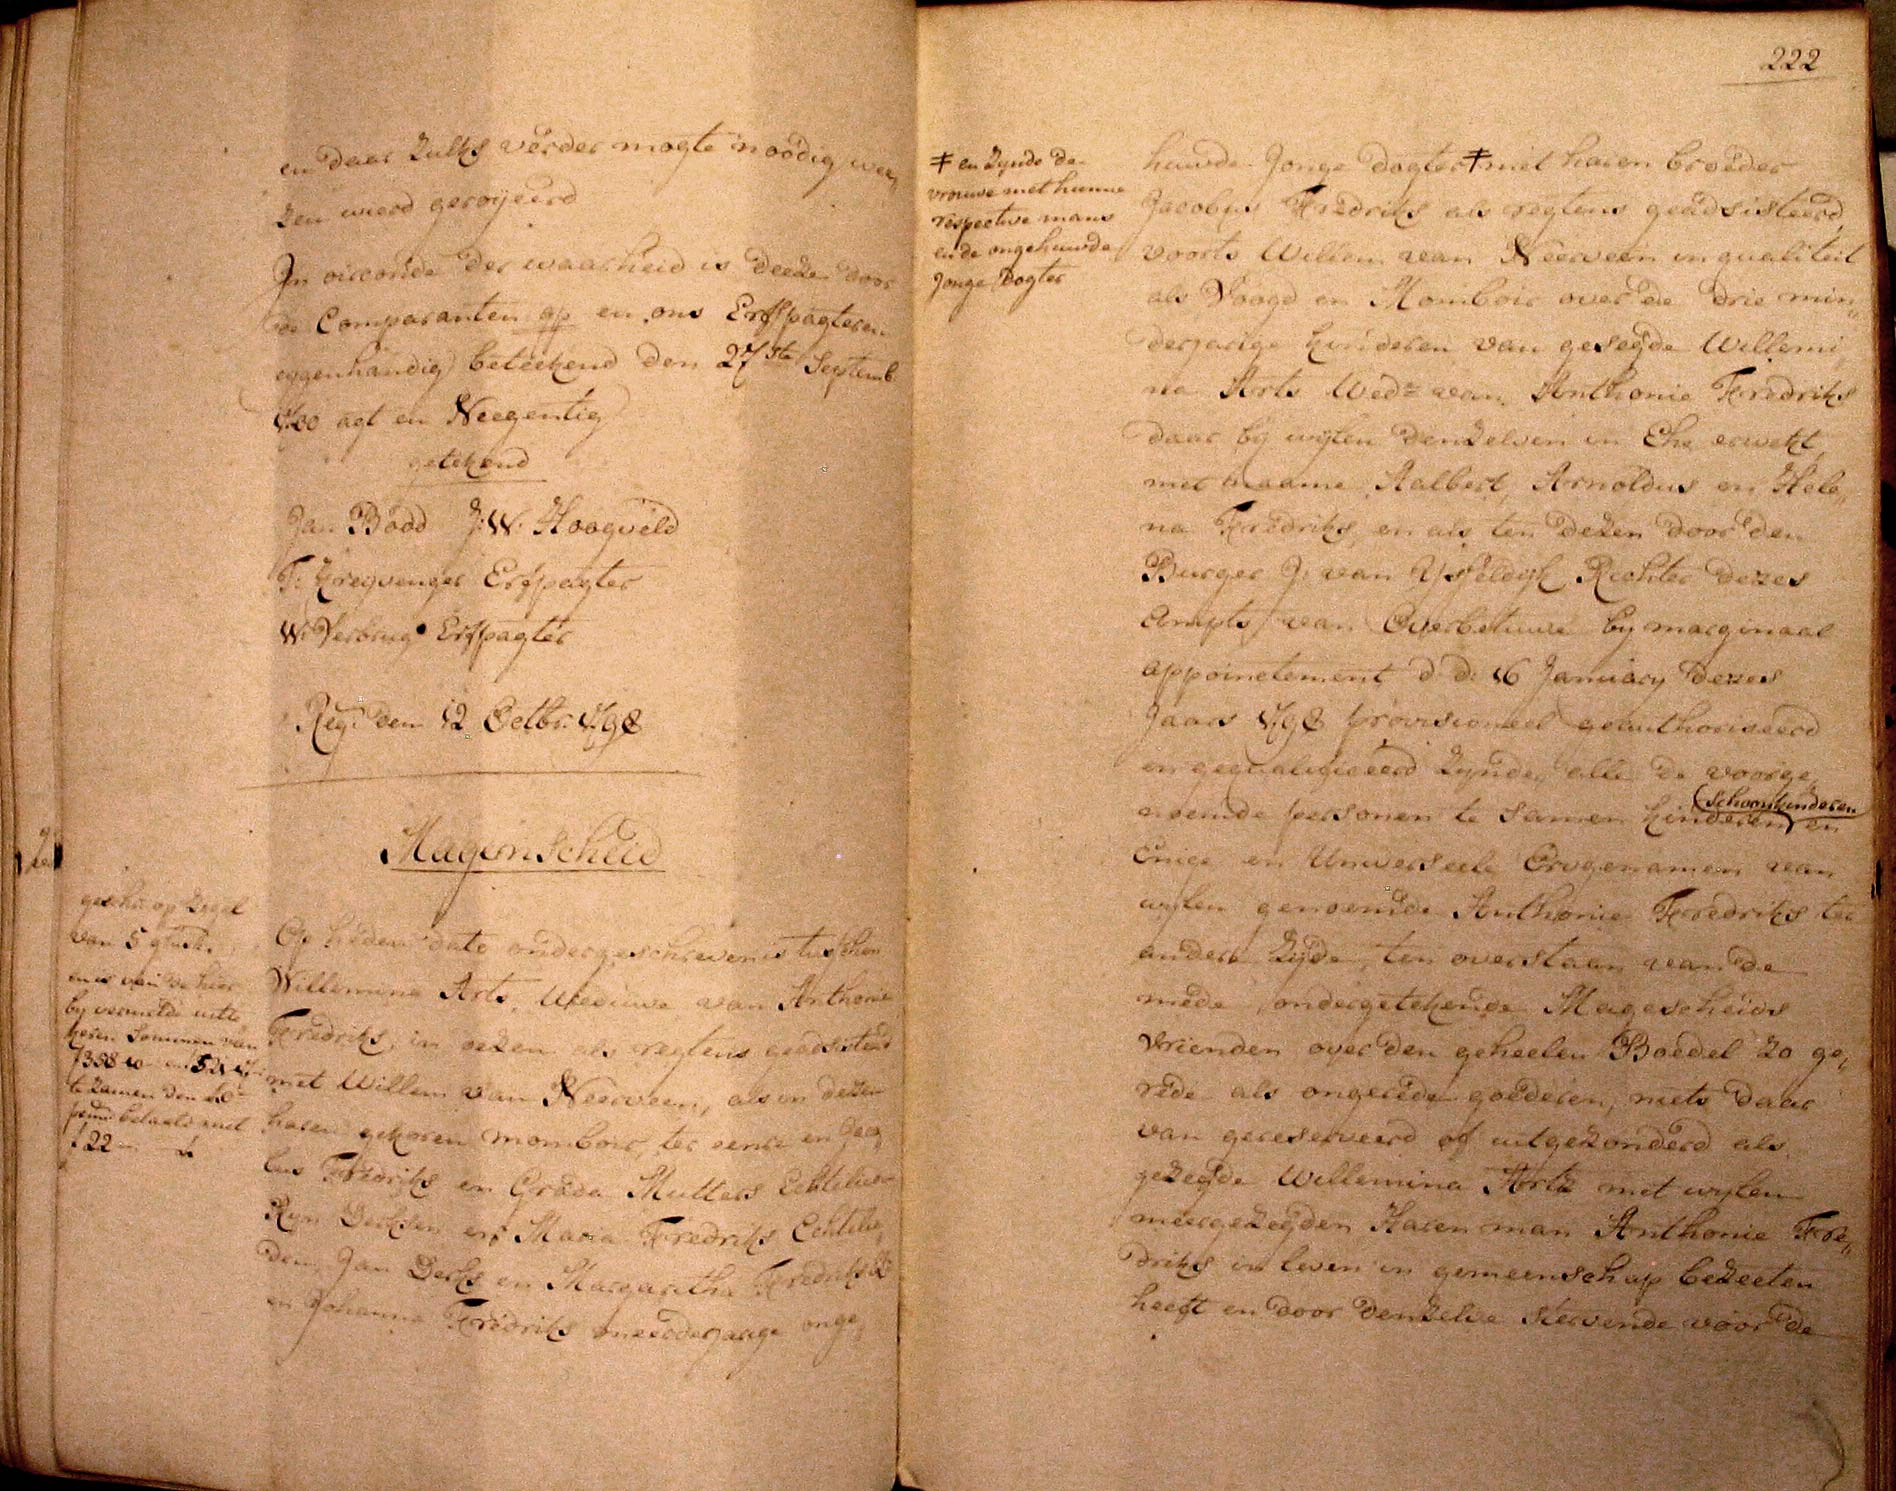 en daar zulks verder mogte noodig wee„
zen wierd geroyeerd
In oirconde der waarheid is deezen door
de Comparanten op en ons Erfpagteren
eygenhandig beteekend den 27ste Septemb.
1700 agt en Neegentig
getekend
Jan Bodd J: W: Hoogveld
F: Kreyvenger Erfpagter
W: Verbrug Erfpagter
Reg: den 12 Octbr. 1798
Magenscheid
gesch: op Zegel
van 5 gl.
en is van de hier
by vermelde uitte
keren sommen van
f 358-10- en
te zamen den 50e
penn: betaald met
f 22
Op heden dato ondergeschreven is tusschen
Willemina Arts, Weduwe van Anthonie
Fredriks, in dezen als regtens geadsisteerd
met Willem van Neerveen, als in dezen
haren gekoren momboir, ter eenre en Jaco
bus Fredriks en Grada Mutters Echtelieden
Ryn Derksen en Maria Fredriks Echtelie„
den, Jan Derks en Margaretha Fredriks
en Johanna Fredriks meerderjarige onge„
222
‡ en zynde de
vrouwe met hunne
respective mans
en de ongehuwde
Jonge Dogter
huwde Jonge dogter ‡ met haren broeder
Jacobus Fredriks als regtens geadsisteerd
voorts Willem van Neerveen in qualiteit
als Voogd en Momboir over de drie min„
derjarige kinderen van gesegde Willemi„
na Arts Wede van Anthonie Fredriks
daar by wylen denzelven in Ehe erwekt
met naame Aalbert, Arnoldus en Hele„
na Fredriks, en als ten dezen door den
Burger J: van Ysseldyk Richter dezes
Ampts van Overbetuwe by marginaal
appoinctement d: d: 16 January dezes
Jaars 1798 provisioneel geauthoriseerd
en gequalificeerd zynde, alle de voorge„
(schoonkinderen
noemde personen te samen kinderen) en
Enige en Universeele Ervgenamen van
wylen genoemde Anthonie Fredriks ter
andere zyde, ten overstaan van de
mede ondergetekende Magescheids
vrienden over den geheelen Boedel zo ge„
rede als ongerede goederen, niets daar
van gereserveerd of uitgezonderd als
gezegde Willemina Arts met wylen
meergezegden Haren man Anthonie Fre„
driks in leven in gemeenschap bezeeten
heeft en door denzelve stervende voor de